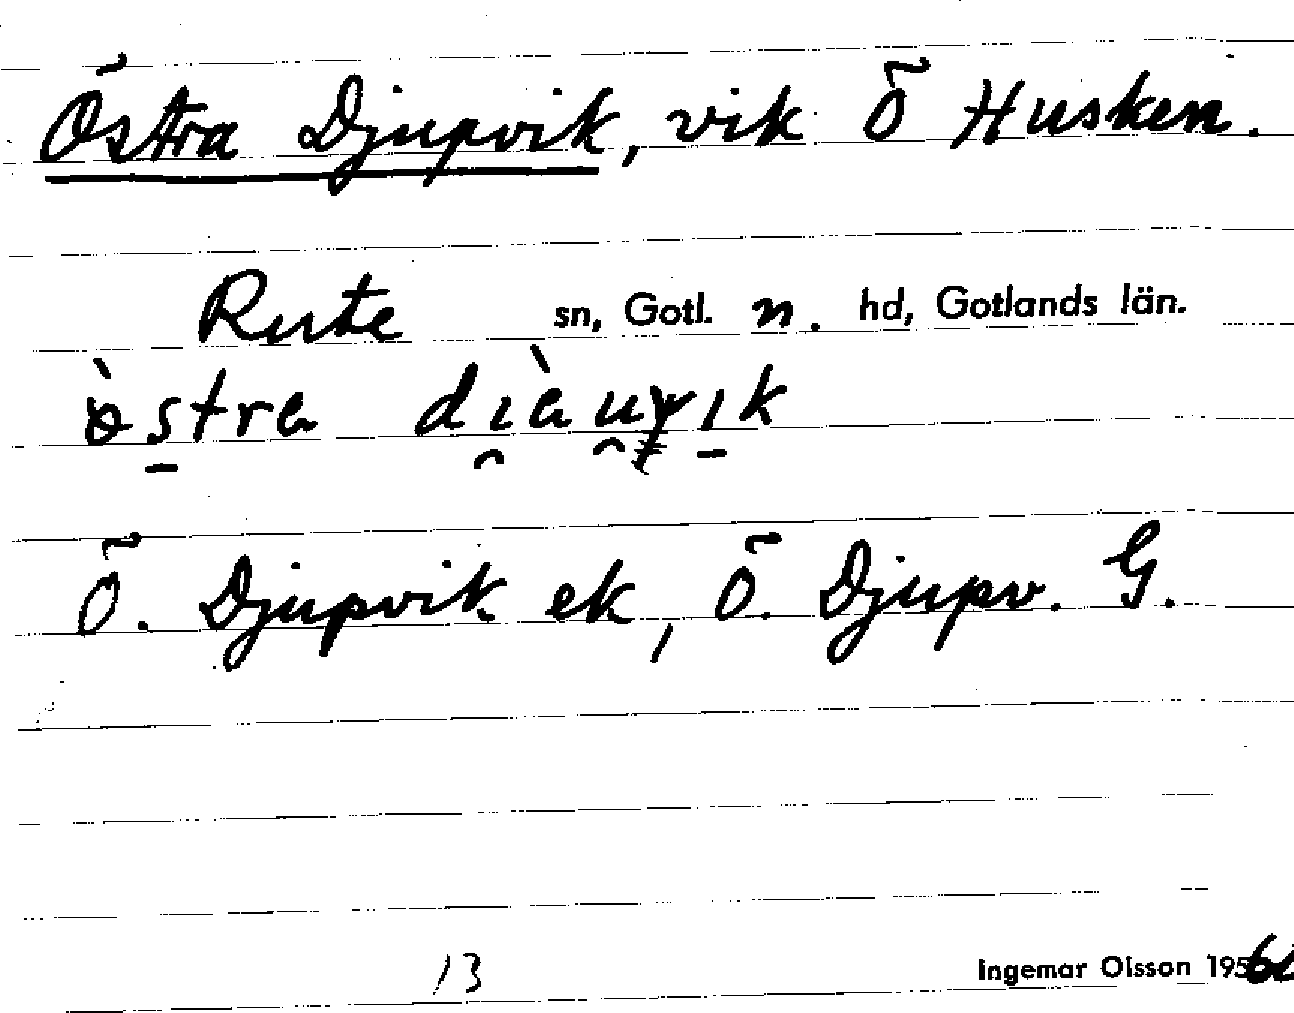 Östra Djupvik, vik Ö Husken.
Rute sn, Gotl. n. hd, Gotlands län.
Ö. Djupvik ek, Ö. Djupv. G.
13
Ingemar Olsson 195